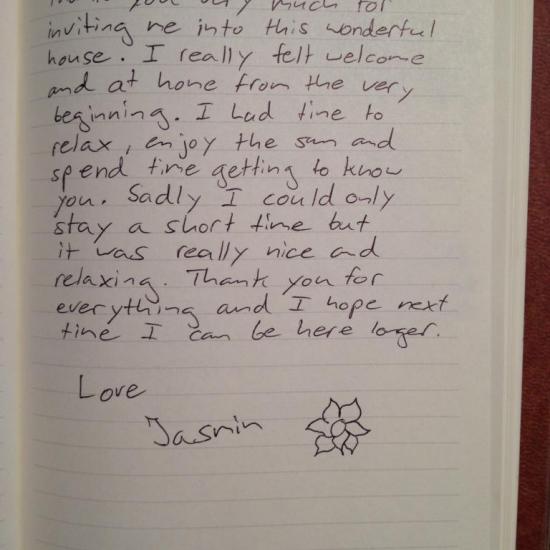 you very much for
inviting me into this wonderful
house. I really felt welcome
and at home from the very
beginning. I had time to
relax, enjoy the sun and
spend time getting to know
you. Sadly I could only
stay a short time but
it was really nice and
relaxing. Thank you for
everything and I hope next
time I can be here longer.
Love
Jasmin